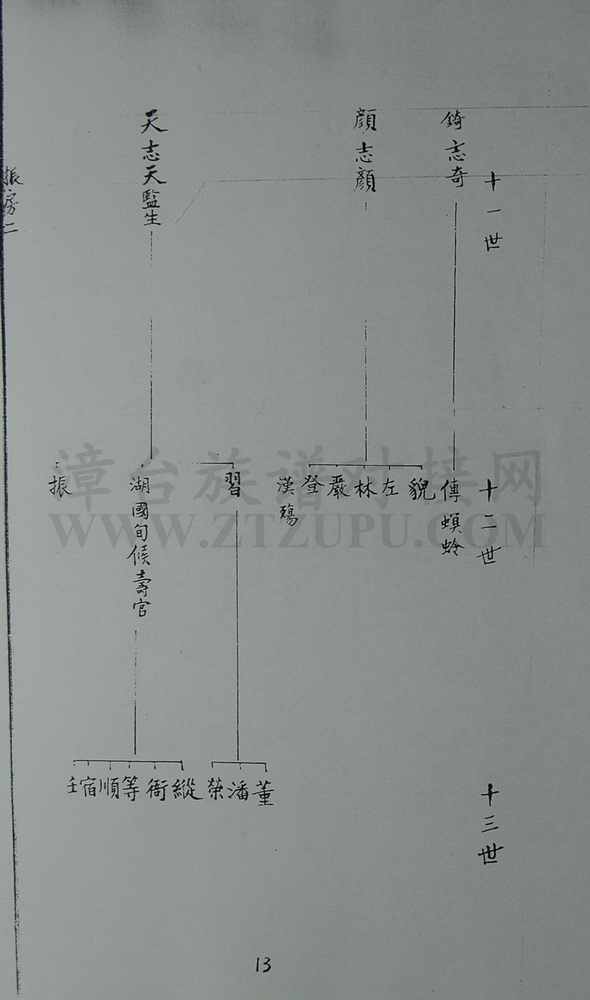 十一世
錡志奇
顏志顏
天志天監生
振房二
十二世
傳螟蛉
貌
左
林
嚴
登
漢殤
習
湖國旬候壽官
振
十三世
董
潘
榮
縱
衙
等
順
宿
壬
13
漳台族谱对接网
WWW.ZTZUPU.COM